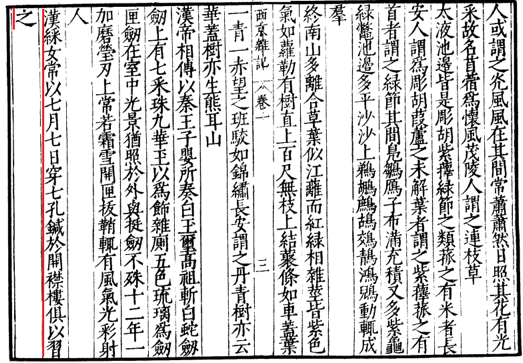 人或謂之光風風在其間常蕭蕭然日照其花有光
采故名苜蓿為懷風茂陵人謂之連枝草
太液池邊皆是彫胡紫蘀綠節之類菰之有米者長
安人謂為彫胡葭蘆之未解葉者謂之紫蘀菰之有
首者謂之綠節其間鳧雛鴈子布滿充積又多紫龜
綠鱉池邊多平沙沙上鵜鶘鷓鴣鵁鶄鴻鶂動輒成
羣
終南山多離合草葉似江蘺而紅綠相雜莖皆紫色
氣如蘿勒有樹直上百尺無枝上結藂條如車蓋葉
西京雜記 卷一 三
一青一赤望之班駮如錦繡長安謂之丹青樹亦云
華蓋樹亦生熊耳山
漢帝相傳以秦王子嬰所奉白玉璽高祖斬白蛇劒
劒上有七采珠九華玉以為飾雜廁五色琉璃為劒
匣劒在室中光景猶照於外與挺劒不殊十二年一
加磨瑩刃上常若霜雪開匣拔鞘輒有風氣光彩射
人
漢綵女常以七月七日穿七孔鍼於開襟樓俱以習
之